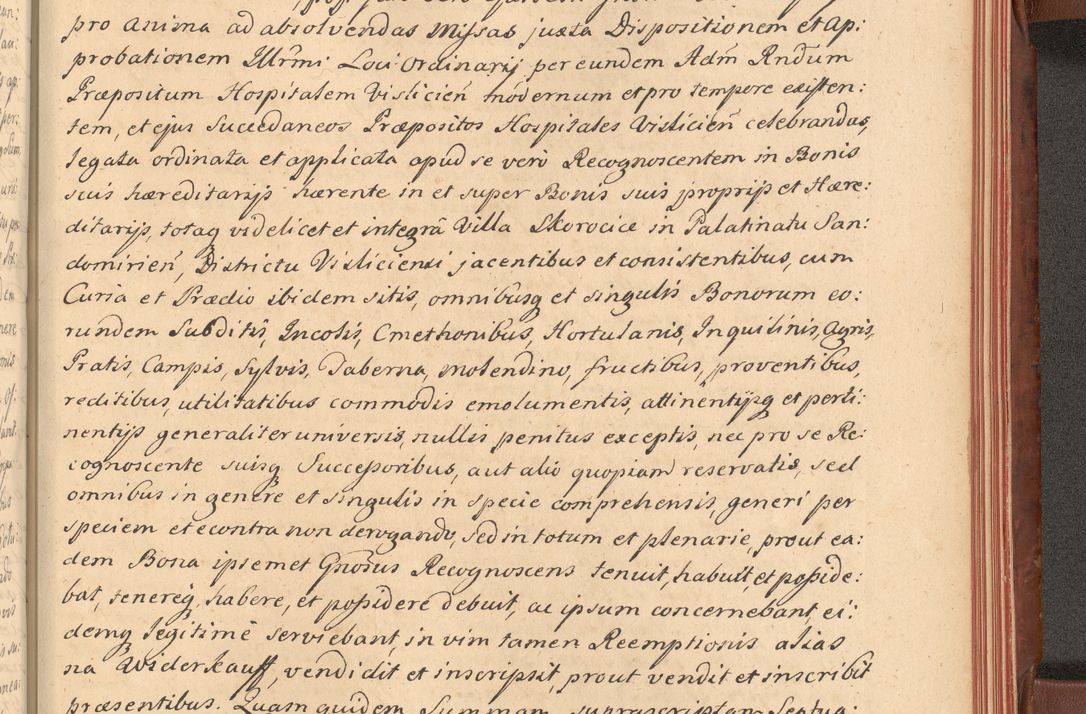 pro anima ad absolvendas Missas juxta Dispositionem et Ap:
probationem Illr̃mi Loci Ordinarij per eundem Adm̃ Rndum
Præpositum Hospitalem Vislicieñ modernum et pro tempore existen:
tem, et ejus Succedaneos Præpositos Hospitales Vislicieñ celebrandas,
legata ordinata et applicata apud se verò Recognoscentem in Bonis
suis hæreditarijs hærente in et super Bonis suis proprijs et Hære:
ditarijs, totaq videlicet et integrâ Villa Skorocice in Palatinatu San:
domirieñ, Districtu Visliciensi jacentibus et consistentibus, cum
Curia et Prædio ibidem sitis, omnibusq et singulis Bonorum eo:
rundem Subditis, Incolis, Cmethonibus, Hortulanis, Inquilinis, Agris,
Pratis, Campis, Sylvis, Taberna, Molendino, fructibus, proventibus,
reditibus, utilitatibus commodis emolumentis, attinentijsq et perti:
nentijs generaliter universis, nullis penitus exceptis, nec pro se Re:
cognoscente suisq Successoribus, aut alio quopiam reservatis, sed
omnibus in genere et singulis in specie comprehensis, generi per
speciem et econtra non derogando, sed in totum et plenarie, prout ea:
dem Bona ipsemet Gñosus Recognoscens tenuit, habuit, et posside:
bat, tenereq, habere, et possidere debuit, ac ipsum concernebant, ei:
demq legitimè serviebant, in vim tamen Reemptionis alias
na Widerkauff, vendidit et inscripsit, prout vendit et inscribit
præsentibus. Quam quidem Summam suprascriptam Septua: